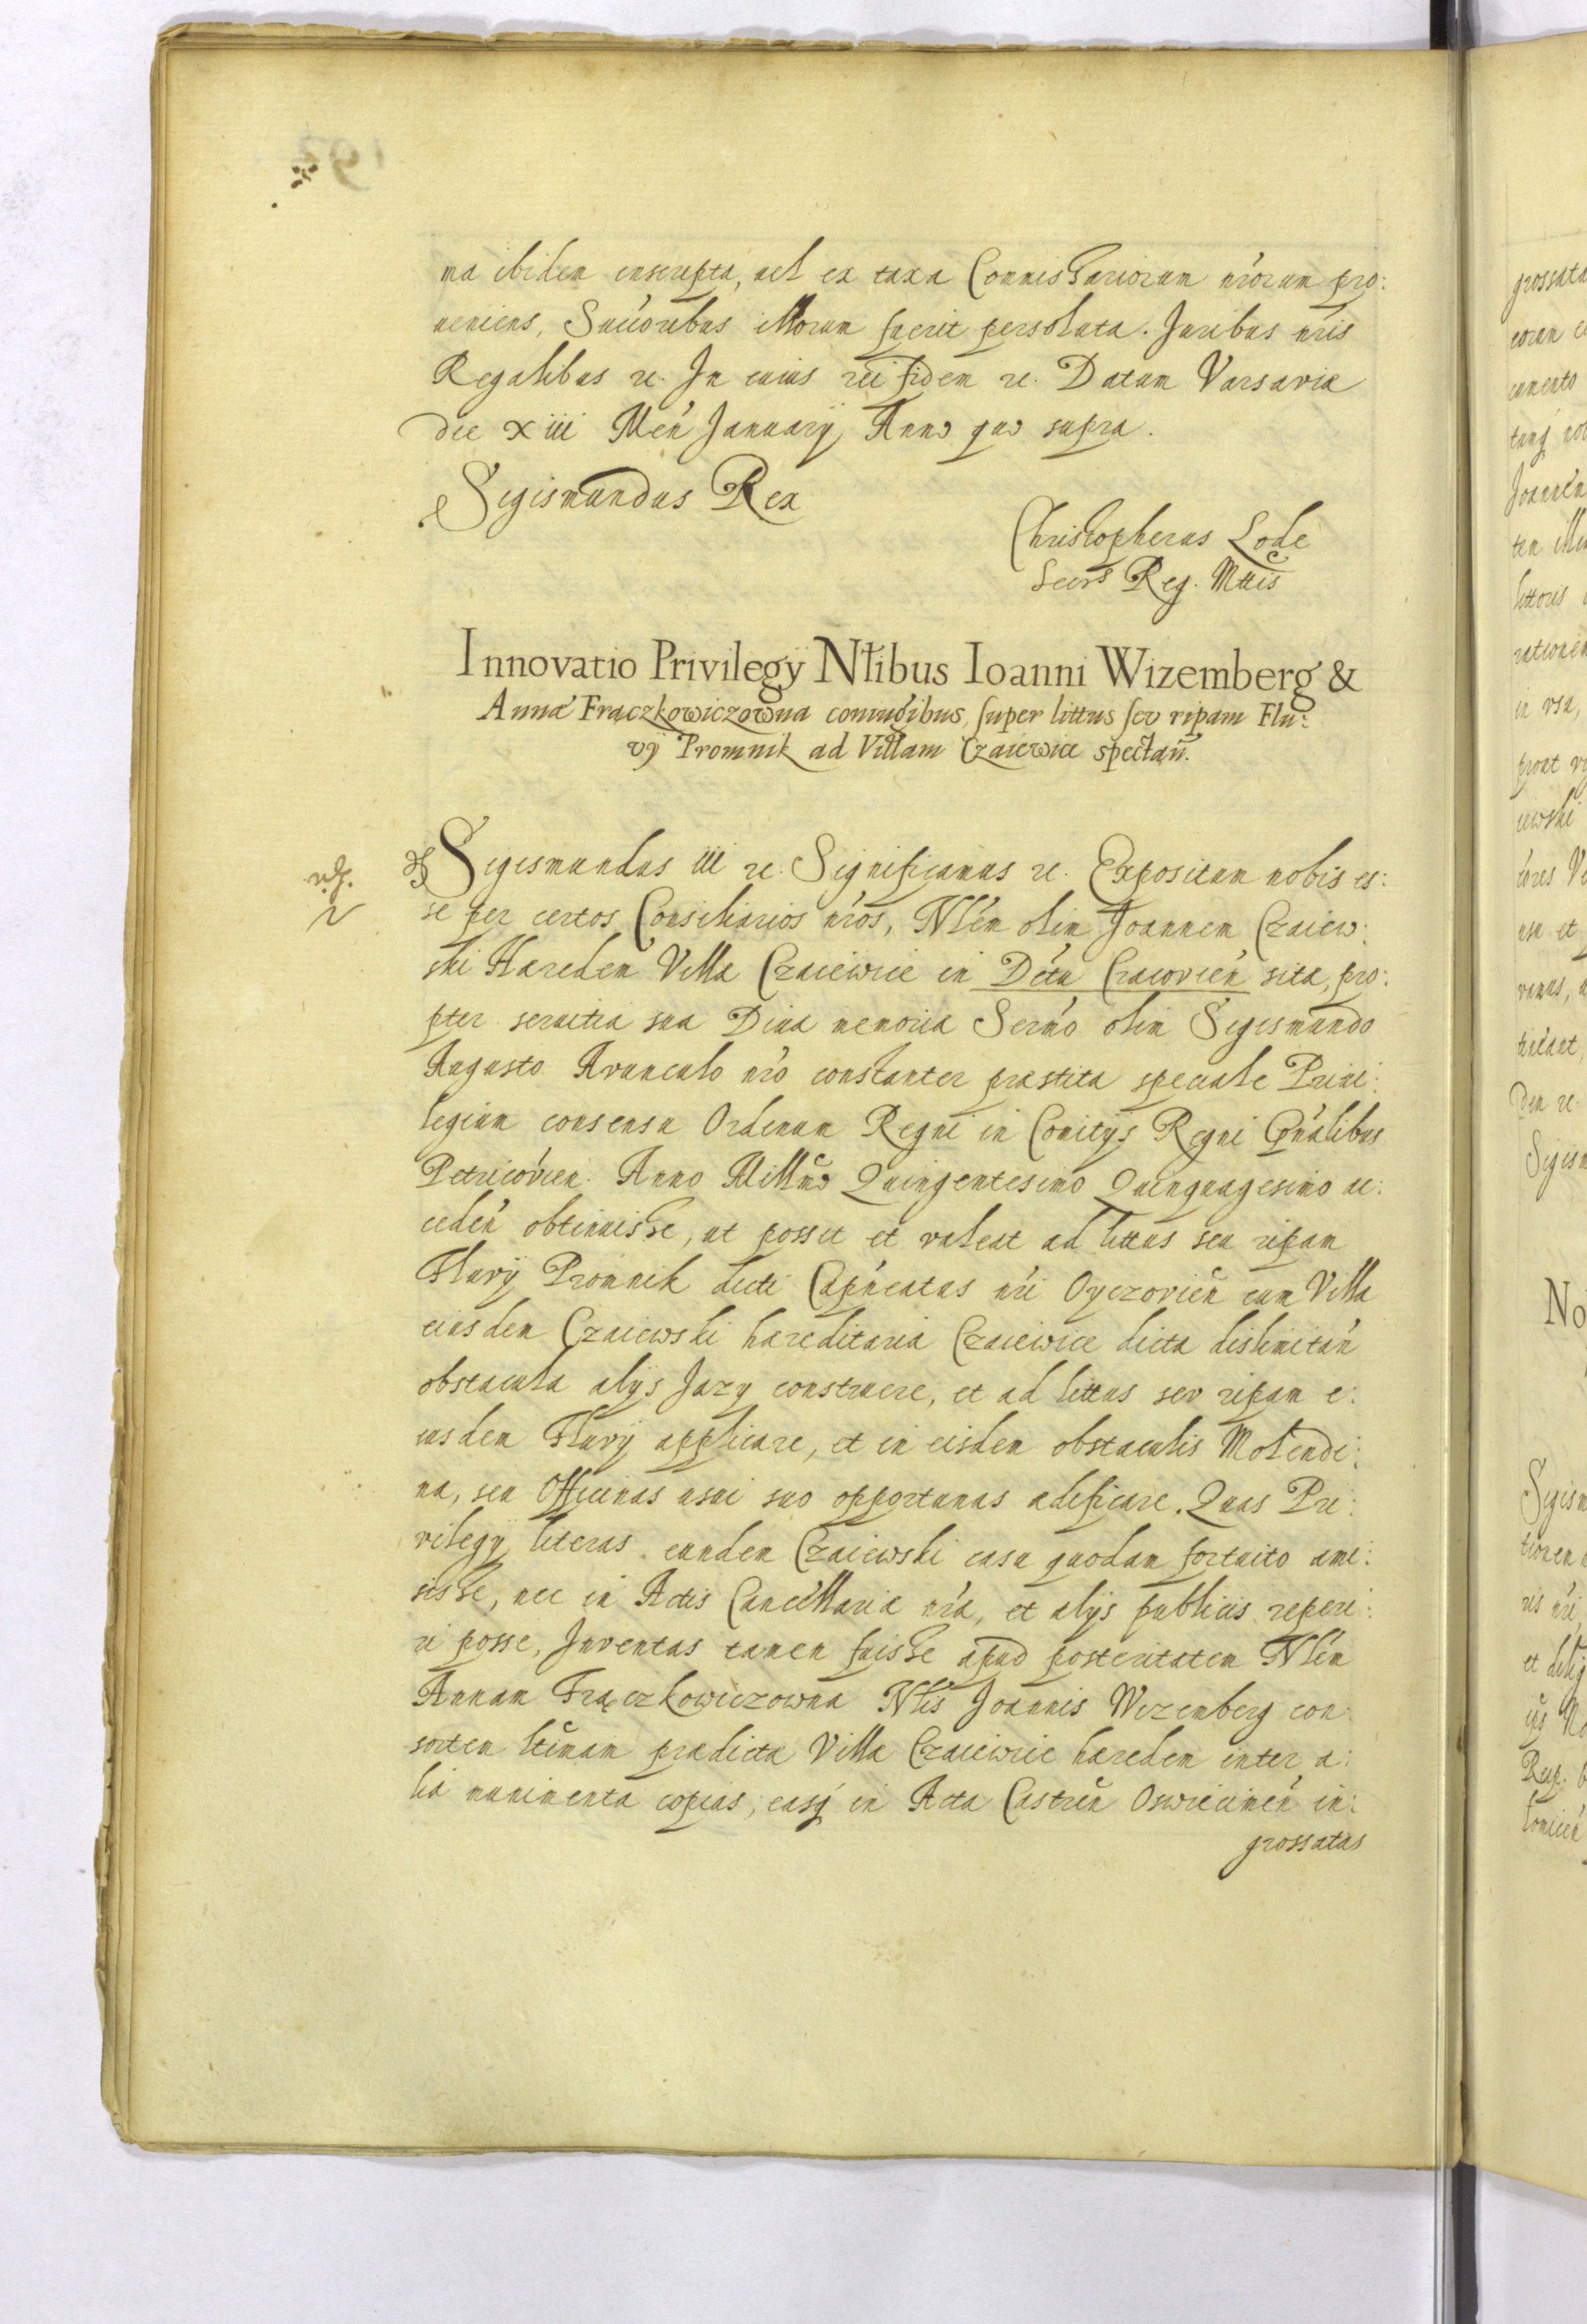 ma ibidem inscripta, vel ex taxa Commissariorum nr̃orum pro:
veniens, Succ̃oribus illorum fuerit persoluta. Juribus nr̃is
Regalibus ꝛc. In cuius rei fidem ꝛc. Datum Varsaviæ
die xiii Meñ Januarÿ Anno quo supra.
Sigismundus Rex
Christopherus Lode
Secrs Reg. Mttis
Innovatio Privilegÿ Nl̃ibus Ioanni Wizemberg &
Annæ Frączkowiczowna coniugibus, super littus seu ripam Flu:
vÿ Promnik ad Villam Czaiewice spectañ.
Sigismundus iii ꝛc. Significamus ꝛc. Expositum nobis es:
se per certos Consiliarios nr̃os, Nl̃em olim Joannem Czaiew:
ski Hæredem Villæ Czaiewice in Dc̃tu Cracovieñ sitæ, pro:
pter servitia sua Divæ memoriæ Ser̃mo olim Sigismundo
Augusto Avunculo nr̃o constanter præstita speciale Privi:
legium consensu Ordinum Regni in Comitÿs Regni Gñalibus
Petricovieñ. Anno Millm̃o Quingentesimo Quinquagesimo ac:
cedeñ obtinuisse, ut posset et valeat ad littus seu ripam
Fluvÿ Promnik dicti Capñeatus nr̃i Oyczovieñ cum Villa
eiusdem Czaiewski hæreditaria Czaiewice dicta dislimitañ
obstacula alÿs Jazy construere, et ad littus seu ripam e:
iusdem Fluvÿ applicare, et in eisdem obstaculis Molendi:
na, seu Officinas usui suo opportunas ædificare. Quas Pri:
vilegÿ literas eundem Czaiewski casu quodam fortuito ami:
sisse, nec in Actis Cancellariæ nr̃æ, et alÿs publicis reperi:
ri posse, Inventas tamen fuisse apud posteritatem Nl̃em
Annam Frączkowiczowna Nl̃is Joannis Wizemberg con:
sortem ltc̃imam prædictæ Villæ Czaiewice hæredem inter a:
lia munimenta copias, easq́ in Acta Castreñ Oswiecimeñ in:
grossatas